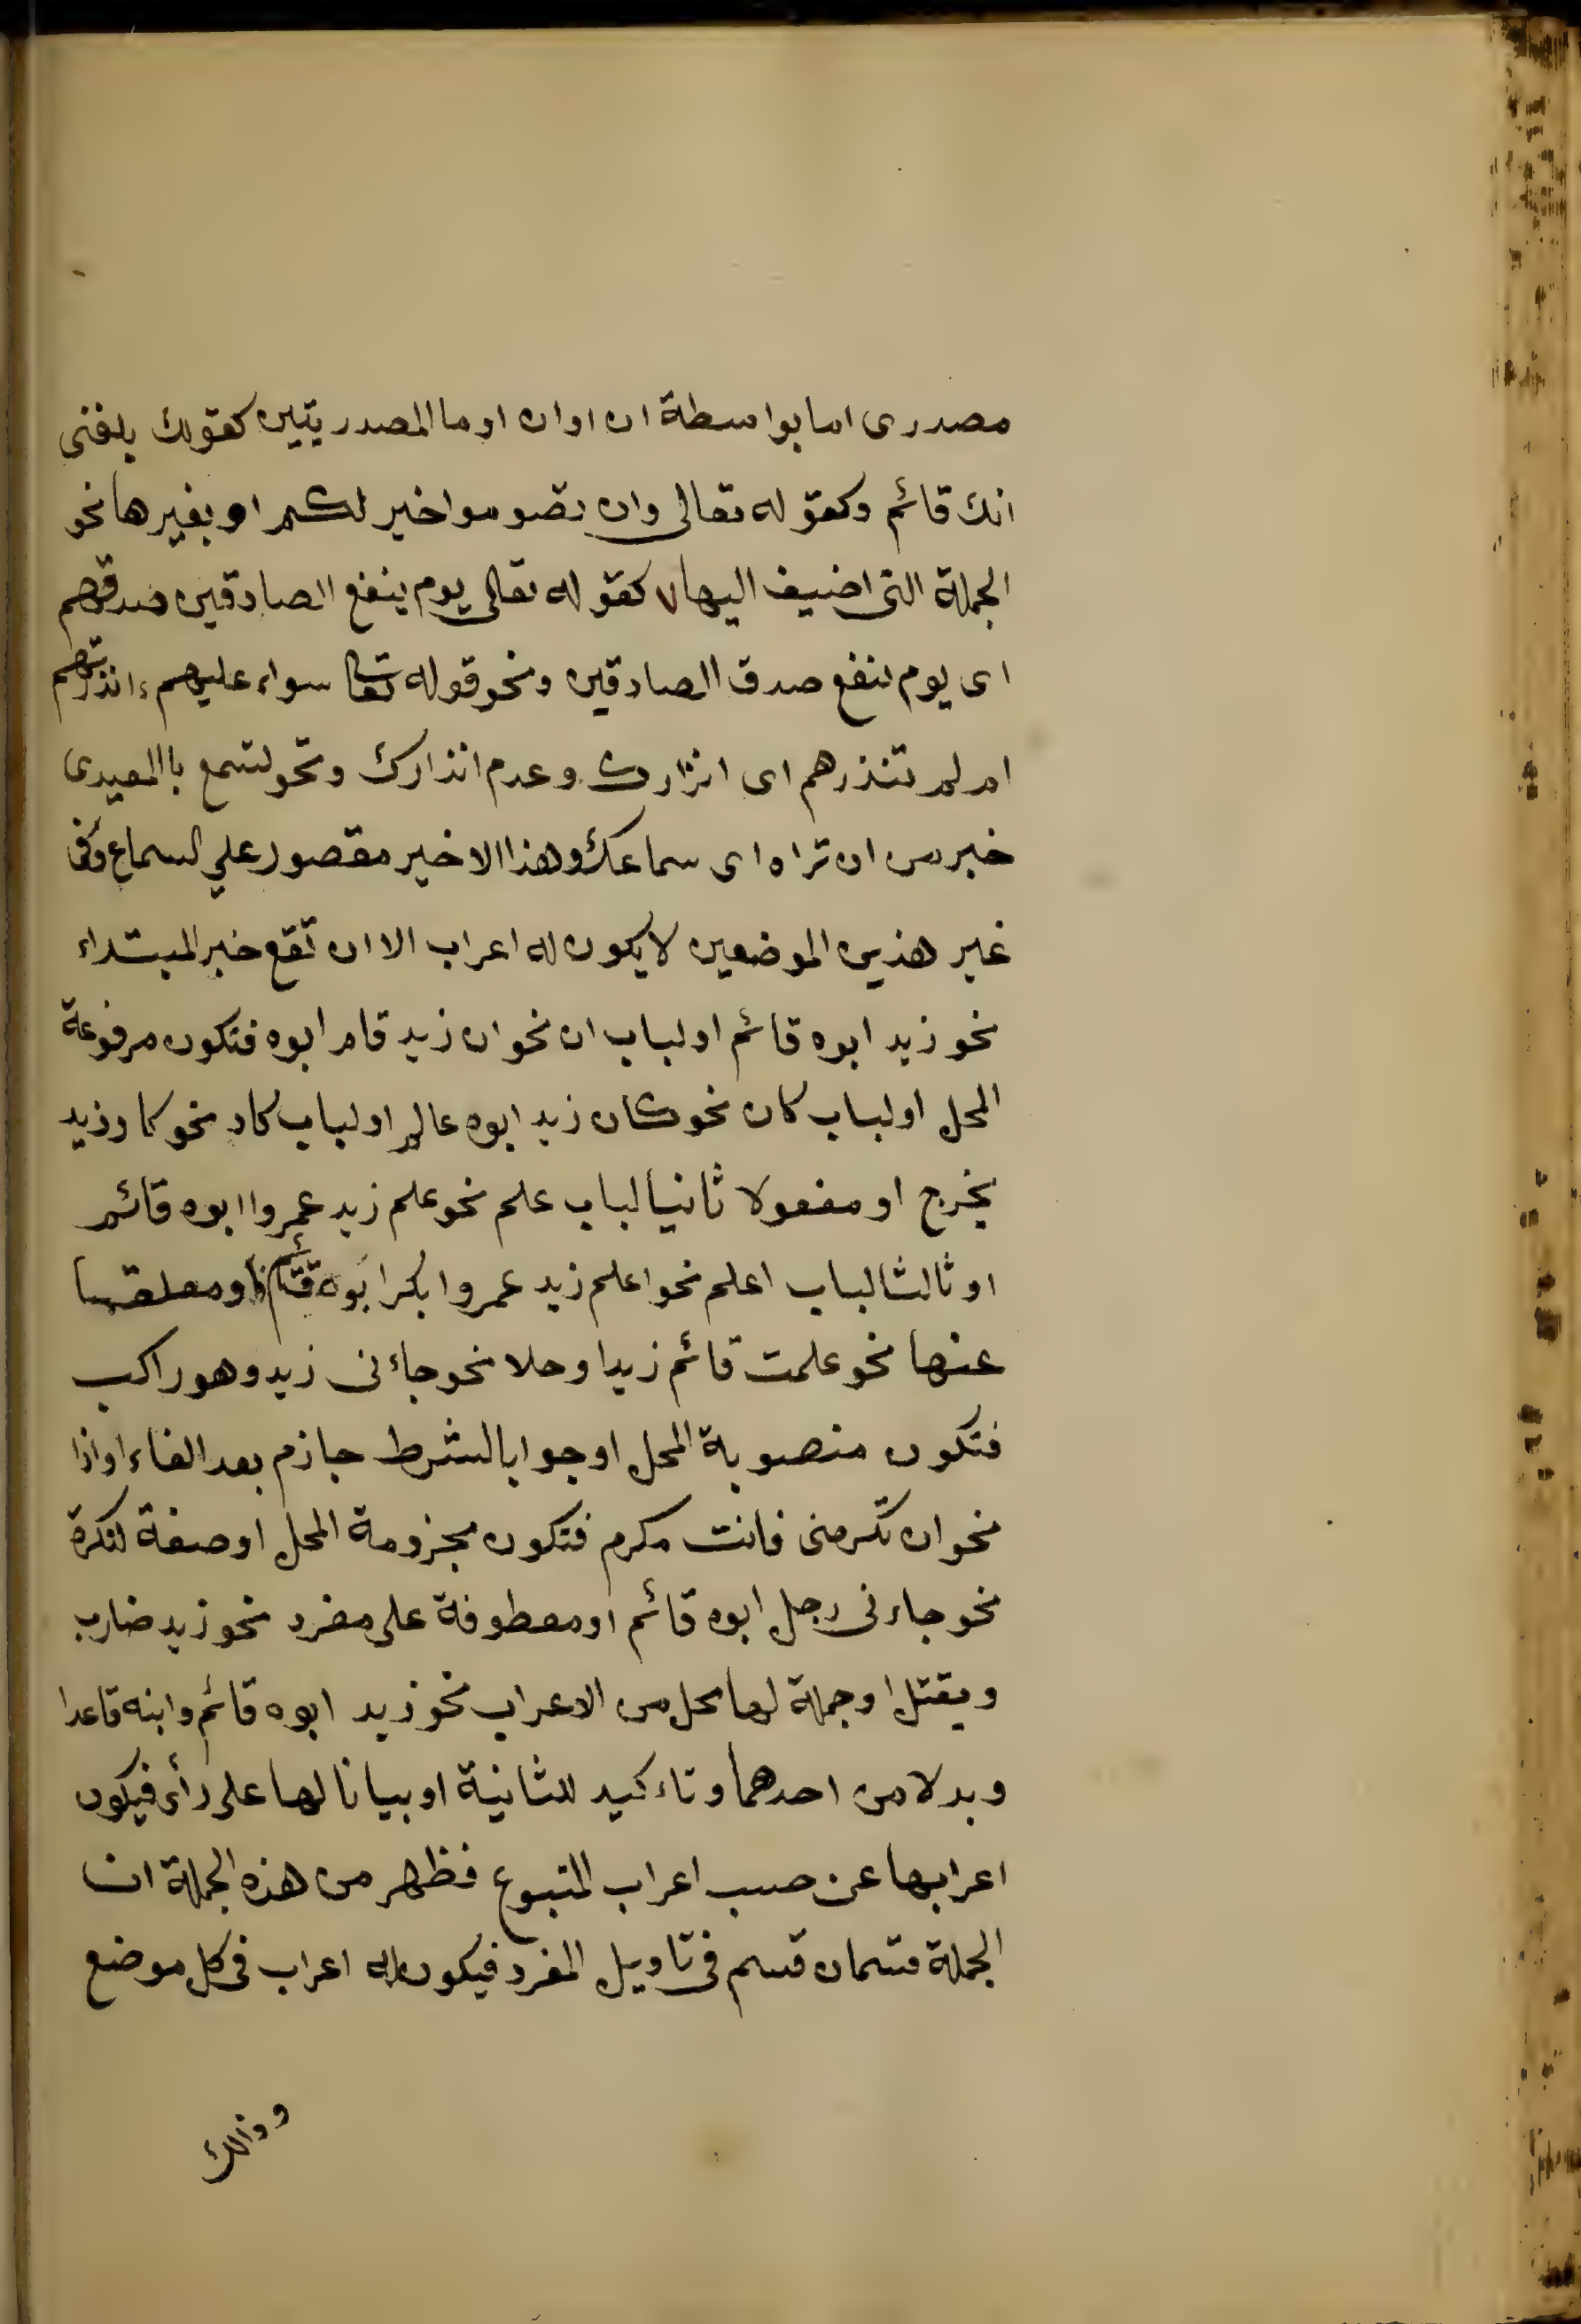 مصدرى اما بواسطة ان او ان او ما المصدريتين كقولك بلغنى
انك قائم وكقوله تعالى وان تصوموا خير لكم او بغيرها نحو
الجملة التى اضيف اليها كقوله تعالى يوم ينفع الصادقين صدقهم
اى يوم نفع صدق الصادقين ونحو قوله تعا سواء عليهم ءانذرتهم
ام لم تنذرهم اى انذارك وعدم انذارك ونحو تسمع باالمعيدى
خير من ان تراه اى سماعك وهذا الاخير مقصور على السماع وفى
غير هذين الموضعين لا يكون له اعراب الا ان تقع خبر المبتداء
نحو زيد ابوه قائم او لباب ان نحو ان زيد قام ابوه فتكون مرفوعة
المحل او لباب كان نحو كان زيد ابوه عالم او لباب كاد نحو كاد زيد
يخرج او مفعولا ثانيا لباب علم نحو علم زيد عمروا ابوه قائم
او ثالثا لباب اعلم نحو اعلم زيد عمروا بكرا ابوه قائم او معلقا
عنها نحو علمت قائم زيدا وحلا نحو جاءنى زيد وهو راكب
فتكون منصوبة المحل او جوابا لشرط جازم بعد الفاء او اذا
نحو ان تكرمنى فانت مكرم فتكون مجزومة المحل او صفة لنكرة
نحو جاءنى رجل ابوه قائم او معطوفة على مفرد نحو زيد ضارب
ويقتل او جملة لها محل من الاعراب نحو زيد ابوه قائم وابنه قاعدا
وبدلا من احدهما وتاءكيد للثانية او بيانا لها على رأى فيكون
اعرابها عن حسب اعراب المتبوع فظهر من هذه الجملة ان
الجملة قسمان قسم فى تاويل المفرد فيكون له اعراب فى كل موضع
وذالك